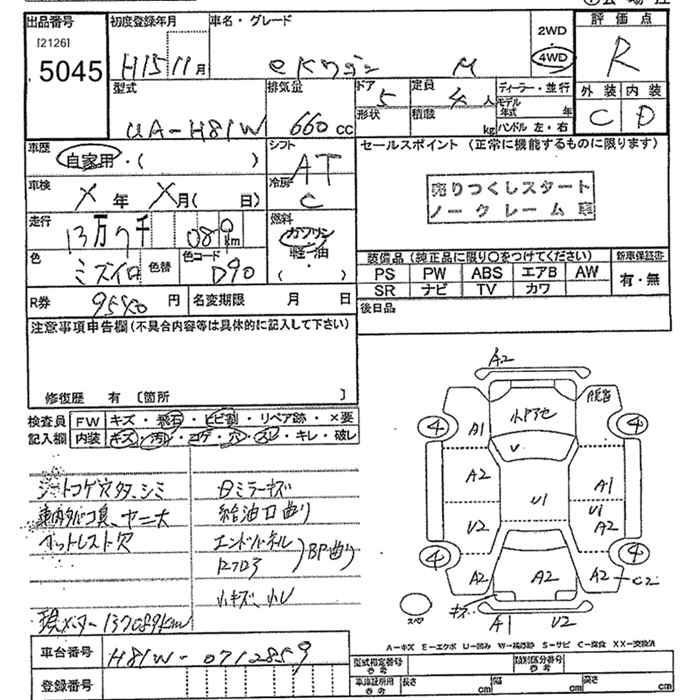 出品番号 初度登録年月 車名・グレード 2WD 評価点
[2126] 5045 H15 11月 eKワゴン M 4WD R
型式 排気量 ドア 定員 ディーラー・並行 外装 内装
5 4人 モデル年式 年
UA-H81W 660cc 形状 積載 kg ハンドル 左・右 C D
車歴 自家用・( ) シフト AT セールスポイント (正常に機能するものに限ります)
車検 X年 X月( 日) 冷房 C 売りつくしスタート
ノークレーム車
走行 13万7千 080km 燃料 ガソリン
軽油
・( )
色 ミズイロ 色替 色コード D90 装備品 (純正品に限り○をつけてください) 新車保証書
PS PW ABS エアB AW 有・無
SR ナビ TV カワ
R券 円 名変期限 月 日 後日品
注意事項申告欄(不具合内容等は具体的に記入して下さい)
修復歴 有 [箇所 ]
検査員 FW キズ・飛石・ヒビ割・リペア跡・×要
記入欄 内装 キズ・汚レ・コゲ・穴・スレ・キレ・破レ
シートコゲ穴タ、シミ
車内タバコ臭、ヤニ大
給油口曲り
エンドパネル
BP曲り
小キズ、小凹
現メーター137089km
A2
A1
4 4
V
A2
U1
A1
U1
U2
A2
4 4
A2 A2 A2 C2
キズ
A1 U2
A-キズ E-エクボ U-凹み W-補修跡 S-サビ C-腐食 XX-交換済
車台番号 H81W-0712859
登録番号
型式指定番号 参考 類別区分番号 参考
車庫証明用 参考 長さ cm 幅 cm 高さ cm